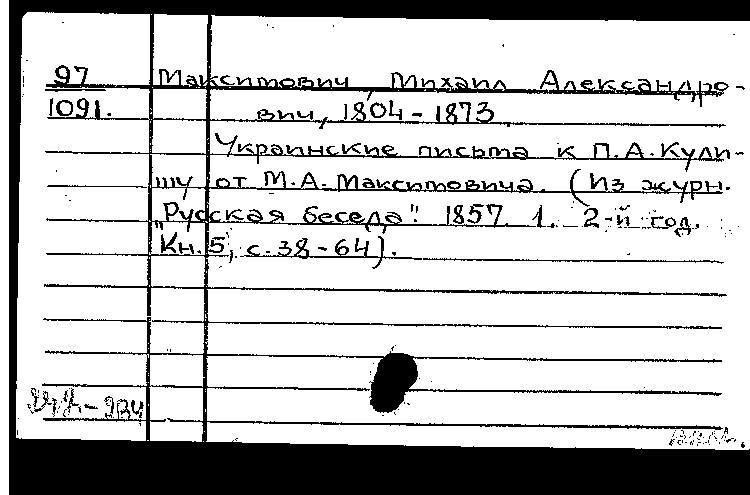 97 Максимович, Михаил Александро-
1091. вич, 1804-1873.
Украинские письма к П.А.Кули-
шу от М.А.Максимовича. (Из журн.
"Русская беседа". 1857. 1. 2-й год.
Кн.5, с.38-64).